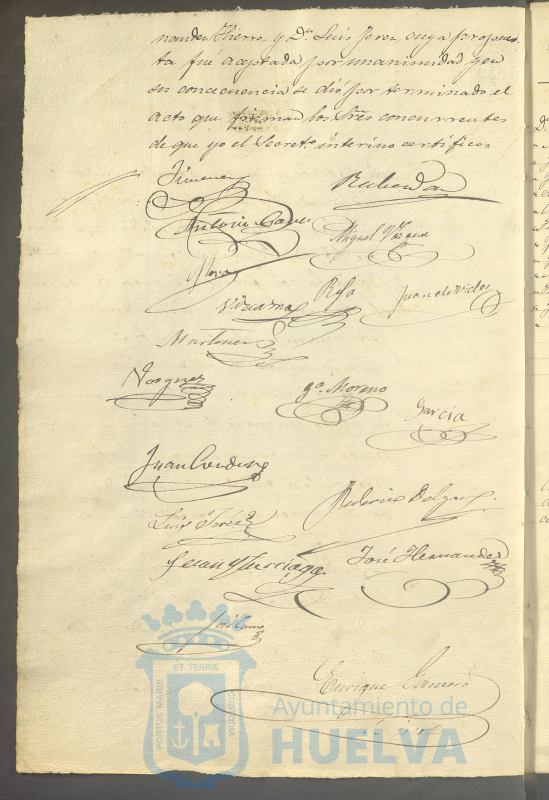 nandez Hierro, y Dn. Luis Jerez, cuya propues-
ta fué aceptada por unanimidad y en
su concecuencia se dió por terminado el
acto que firman los Sres concurrentes
de que yo el Secreto. interino certifico
Jimenez
Antonio
Miguel Vazquez
Mora
Vizcaina Rofa Juan de Vides
Martinez
Vazquez ga. Moreno
Garcia
Juan
Federico Delgado
Luis Jerez
Juan José Hernandez
José
Enrique Gamero
ET TERRÆ
PORTUS MARIS
CUSTODIA
Ayuntamiento de
HUELVA